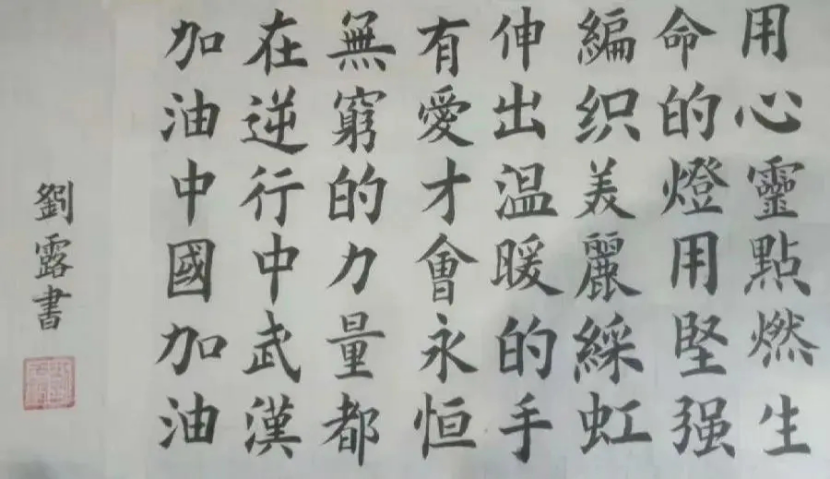 用心靈點燃生
命的燈用堅强
編织美麗綵虹
伸出温暖的手
有愛才會永恒
無窮的力量都
在逆行中武漢
加油中國加油
劉露書